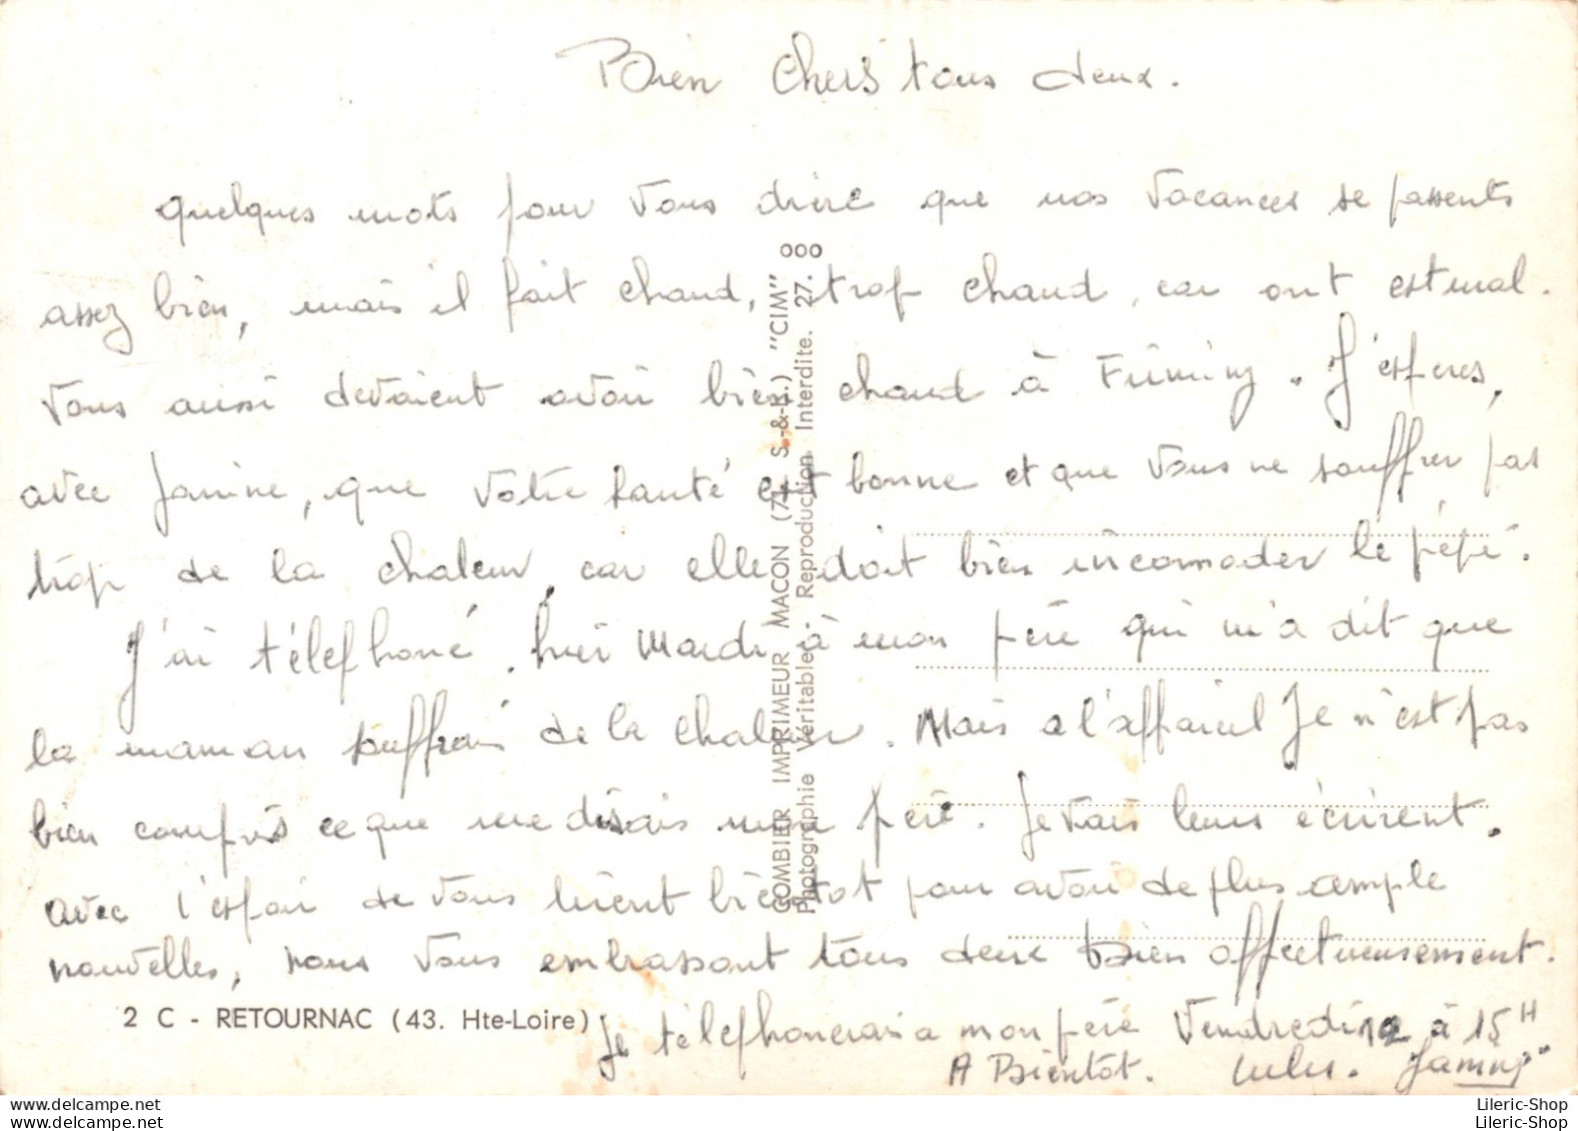 Bien Chers tous deux.
quelques mots pour vous dire que nos vacances se passents
assez bien, mais il fait chaud, trop chaud, car ont est mal.
Vous aussi devaient avoir bien chaud à Firminy. J'esperes,
avec Janine, que votre santé est bonne et que vous ne souffrer pas
trop de la chaleur, car elle doit bien incomoder le pépé.
J'ai téléphoné, hier Mardi à mon père qui m'a dit que
la maman souffrais de la chaleur. Mais a l'appareil Je n'est pas
bien compris ce que me disais mon père. Je vais leurs écrirent.
avec l'espoir de vous lirent bientot pour avoir de plus ample
nouvelles, nous vous embrassont tous deux bien affectueusement.
2 C - RETOURNAC (43. Hte-Loire)
Je téléphonerais a mon père Vendredi 12 à 15H
A Bientôt. Lulu.
GOMBIER IMPRIMEUR MACON (71. S.-&-L.) "CIM"
Photographie Véritable - Reproduction Interdite. 27. 000
Lileric-Shop
Lileric-Shop
www.delcampe.net
www.delcampe.net